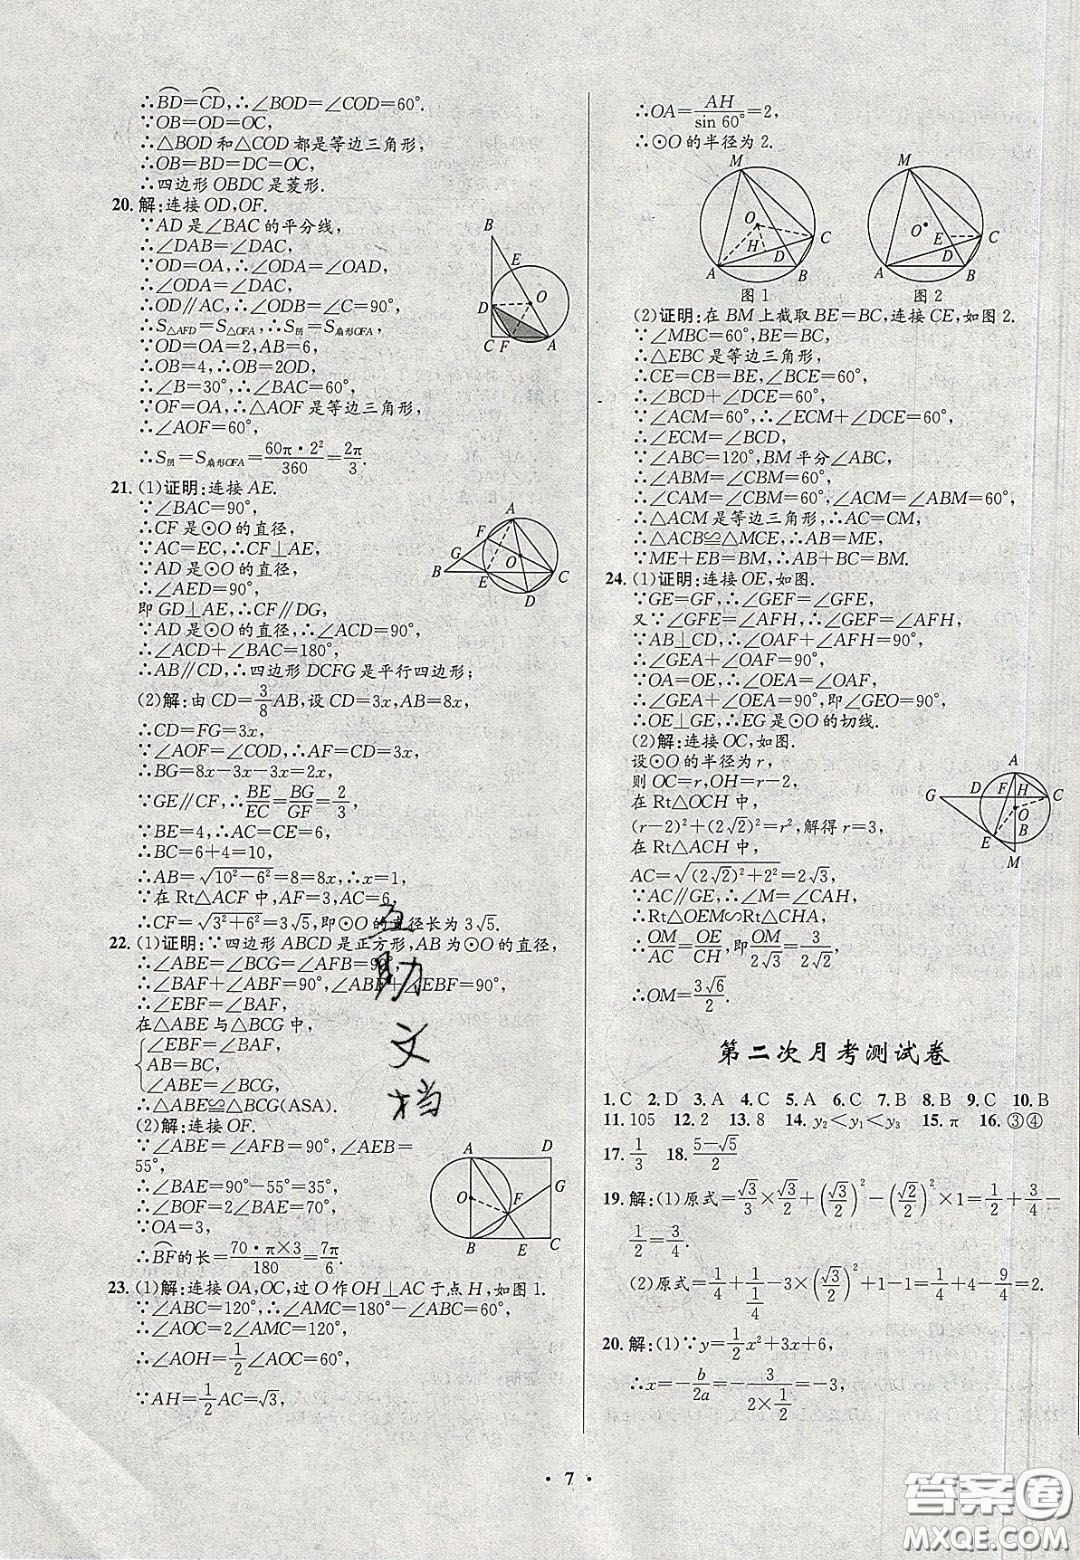 ∴BD⌒=CD⌒,∴∠BOD=∠COD=60°.
∵OB=OD=OC,
∴△BOD和△COD都是等边三角形,
∴OB=BD=DC=OC,
∴四边形OBDC是菱形.
20.解:连接OD,OF.
∵AD是∠BAC的平分线,
∴∠DAB=∠DAC,
∵OD=OA,∴∠ODA=∠OAD,
∴∠ODA=∠DAC,
∴OD∥AC,∴∠ODB=∠C=90°,
∴S△AFD=S△OFA,∴S阴=S扇形OFA,
∵OD=OA=2,AB=6,
∴OB=4,∴OB=2OD,
∴∠B=30°,∴∠BAC=60°,
∵OF=OA,∴△AOF是等边三角形,
∴∠AOF=60°,
∴S阴=S扇形OFA=60π·2²/360=2π/3.
B
E
D
O
C F A
21.(1)证明:连接AE.
∵∠BAC=90°,
∴CF是⊙O的直径,
∵AC=EC,∴CF⊥AE,
∵AD是⊙O的直径,
∴∠AED=90°,
即GD⊥AE,∴CF∥DG,
∵AD是⊙O的直径,∴∠ACD=90°,
∴∠ACD+∠BAC=180°,
∴AB∥CD,∴四边形DCFG是平行四边形;
A
F
G
O
B E C
D
(2)解:由CD=3/8AB,设CD=3x,AB=8x,
∴CD=FG=3x,
∵∠AOF=∠COD,∴AF=CD=3x,
∴BG=8x-3x-3x=2x,
∵GE∥CF,∴BE/EC=BG/GF=2/3,
∵BE=4,∴AC=CE=6,
∴BC=6+4=10,
∴AB=√(10²-6²)=8=8x,∴x=1,
∵在Rt△ACF中,AF=3,AC=6,
∴CF=√(3²+6²)=3√5,即⊙O的直径长为3√5.
22.(1)证明:∵四边形ABCD是正方形,AB为⊙O的直径,
∴∠ABE=∠BCG=∠AFB=90°,
∴∠BAF+∠ABF=90°,∠ABF+∠EBF=90°,
∴∠EBF=∠BAF,
在△ABE与△BCG中,
{∠EBF=∠BAF,
AB=BC,
∠ABE=∠BCG,
∴△ABE≌△BCG(ASA).
(2)解:连接OF.
∵∠ABE=∠AFB=90°,∠AEB=
55°,
∴∠BAE=90°-55°=35°,
∴∠BOF=2∠BAE=70°,
∵OA=3,
∴BF⌒的长=70·π×3/180=7π/6.
A D
G
O F
B E C
23.(1)解:连接OA,OC,过O作OH⊥AC于点H,如图1.
∵∠ABC=120°,∴∠AMC=180°-∠ABC=60°,
∴∠AOC=2∠AMC=120°,
∴∠AOH=1/2∠AOC=60°,
∵AH=1/2AC=√3,
互助文档
∴OA=AH/sin 60°=2,
∴⊙O的半径为2.
M
O
H C
D
A B
图1
M
O
E C
D
A B
图2
(2)证明:在BM上截取BE=BC,连接CE,如图2.
∵∠MBC=60°,BE=BC,
∴△EBC是等边三角形,
∴CE=CB=BE,∠BCE=60°,
∴∠BCD+∠DCE=60°,
∵∠ACM=60°,∴∠ECM+∠DCE=60°,
∴∠ECM=∠BCD,
∵∠ABC=120°,BM平分∠ABC,
∴∠ABM=∠CBM=60°,
∴∠CAM=∠CBM=60°,∠ACM=∠ABM=60°,
∴△ACM是等边三角形,∴AC=CM,
∴△ACB≌△MCE,∴AB=ME,
∵ME+EB=BM,∴AB+BC=BM.
24.(1)证明:连接OE,如图.
∵GE=GF,∴∠GEF=∠GFE,
又∵∠GFE=∠AFH,∴∠GEF=∠AFH,
∵AB⊥CD,∴∠OAF+∠AFH=90°,
∴∠GEA+∠OAF=90°,
∵OA=OE,∴∠OEA=∠OAF,
∴∠GEA+∠OEA=90°,即∠GEO=90°,
∴OE⊥GE,∴EG是⊙O的切线.
(2)解:连接OC,如图.
设⊙O的半径为r,
则OC=r,OH=r-2,
在Rt△OCH中,
(r-2)²+(2√2)²=r²,解得r=3,
在Rt△ACH中,
AC=√((2√2)²+2²)=2√3,
∵AC∥GE,∴∠M=∠CAH,
∴Rt△OEM∽Rt△CHA,
∴OM/AC=OE/CH,即OM/2√3=3/2√2,
∴OM=3√6/2.
A
G D F H C
O
E B
M
第二次月考测试卷
1.C 2.D 3.A 4.C 5.A 6.C 7.B 8.B 9.C 10.B
11.105 12.2 13.8 14.y₂<y₁<y₃ 15.π 16.③④
17.1/3 18.(5-√5)/2
19.解:(1)原式=√3/3×√3/2+(√3/2)²-(√2/2)²×1=1/2+3/4-
1/2=3/4.
(2)原式=1/4+1/(1/4)-3×(√3/2)²+1-1=1/4+4-9/4=2.
20.解:(1)∵y=1/2x²+3x+6,
∴x=-b/2a=-3/(2×1/2)=-3,
·7·
答案圈
MXQE.COM